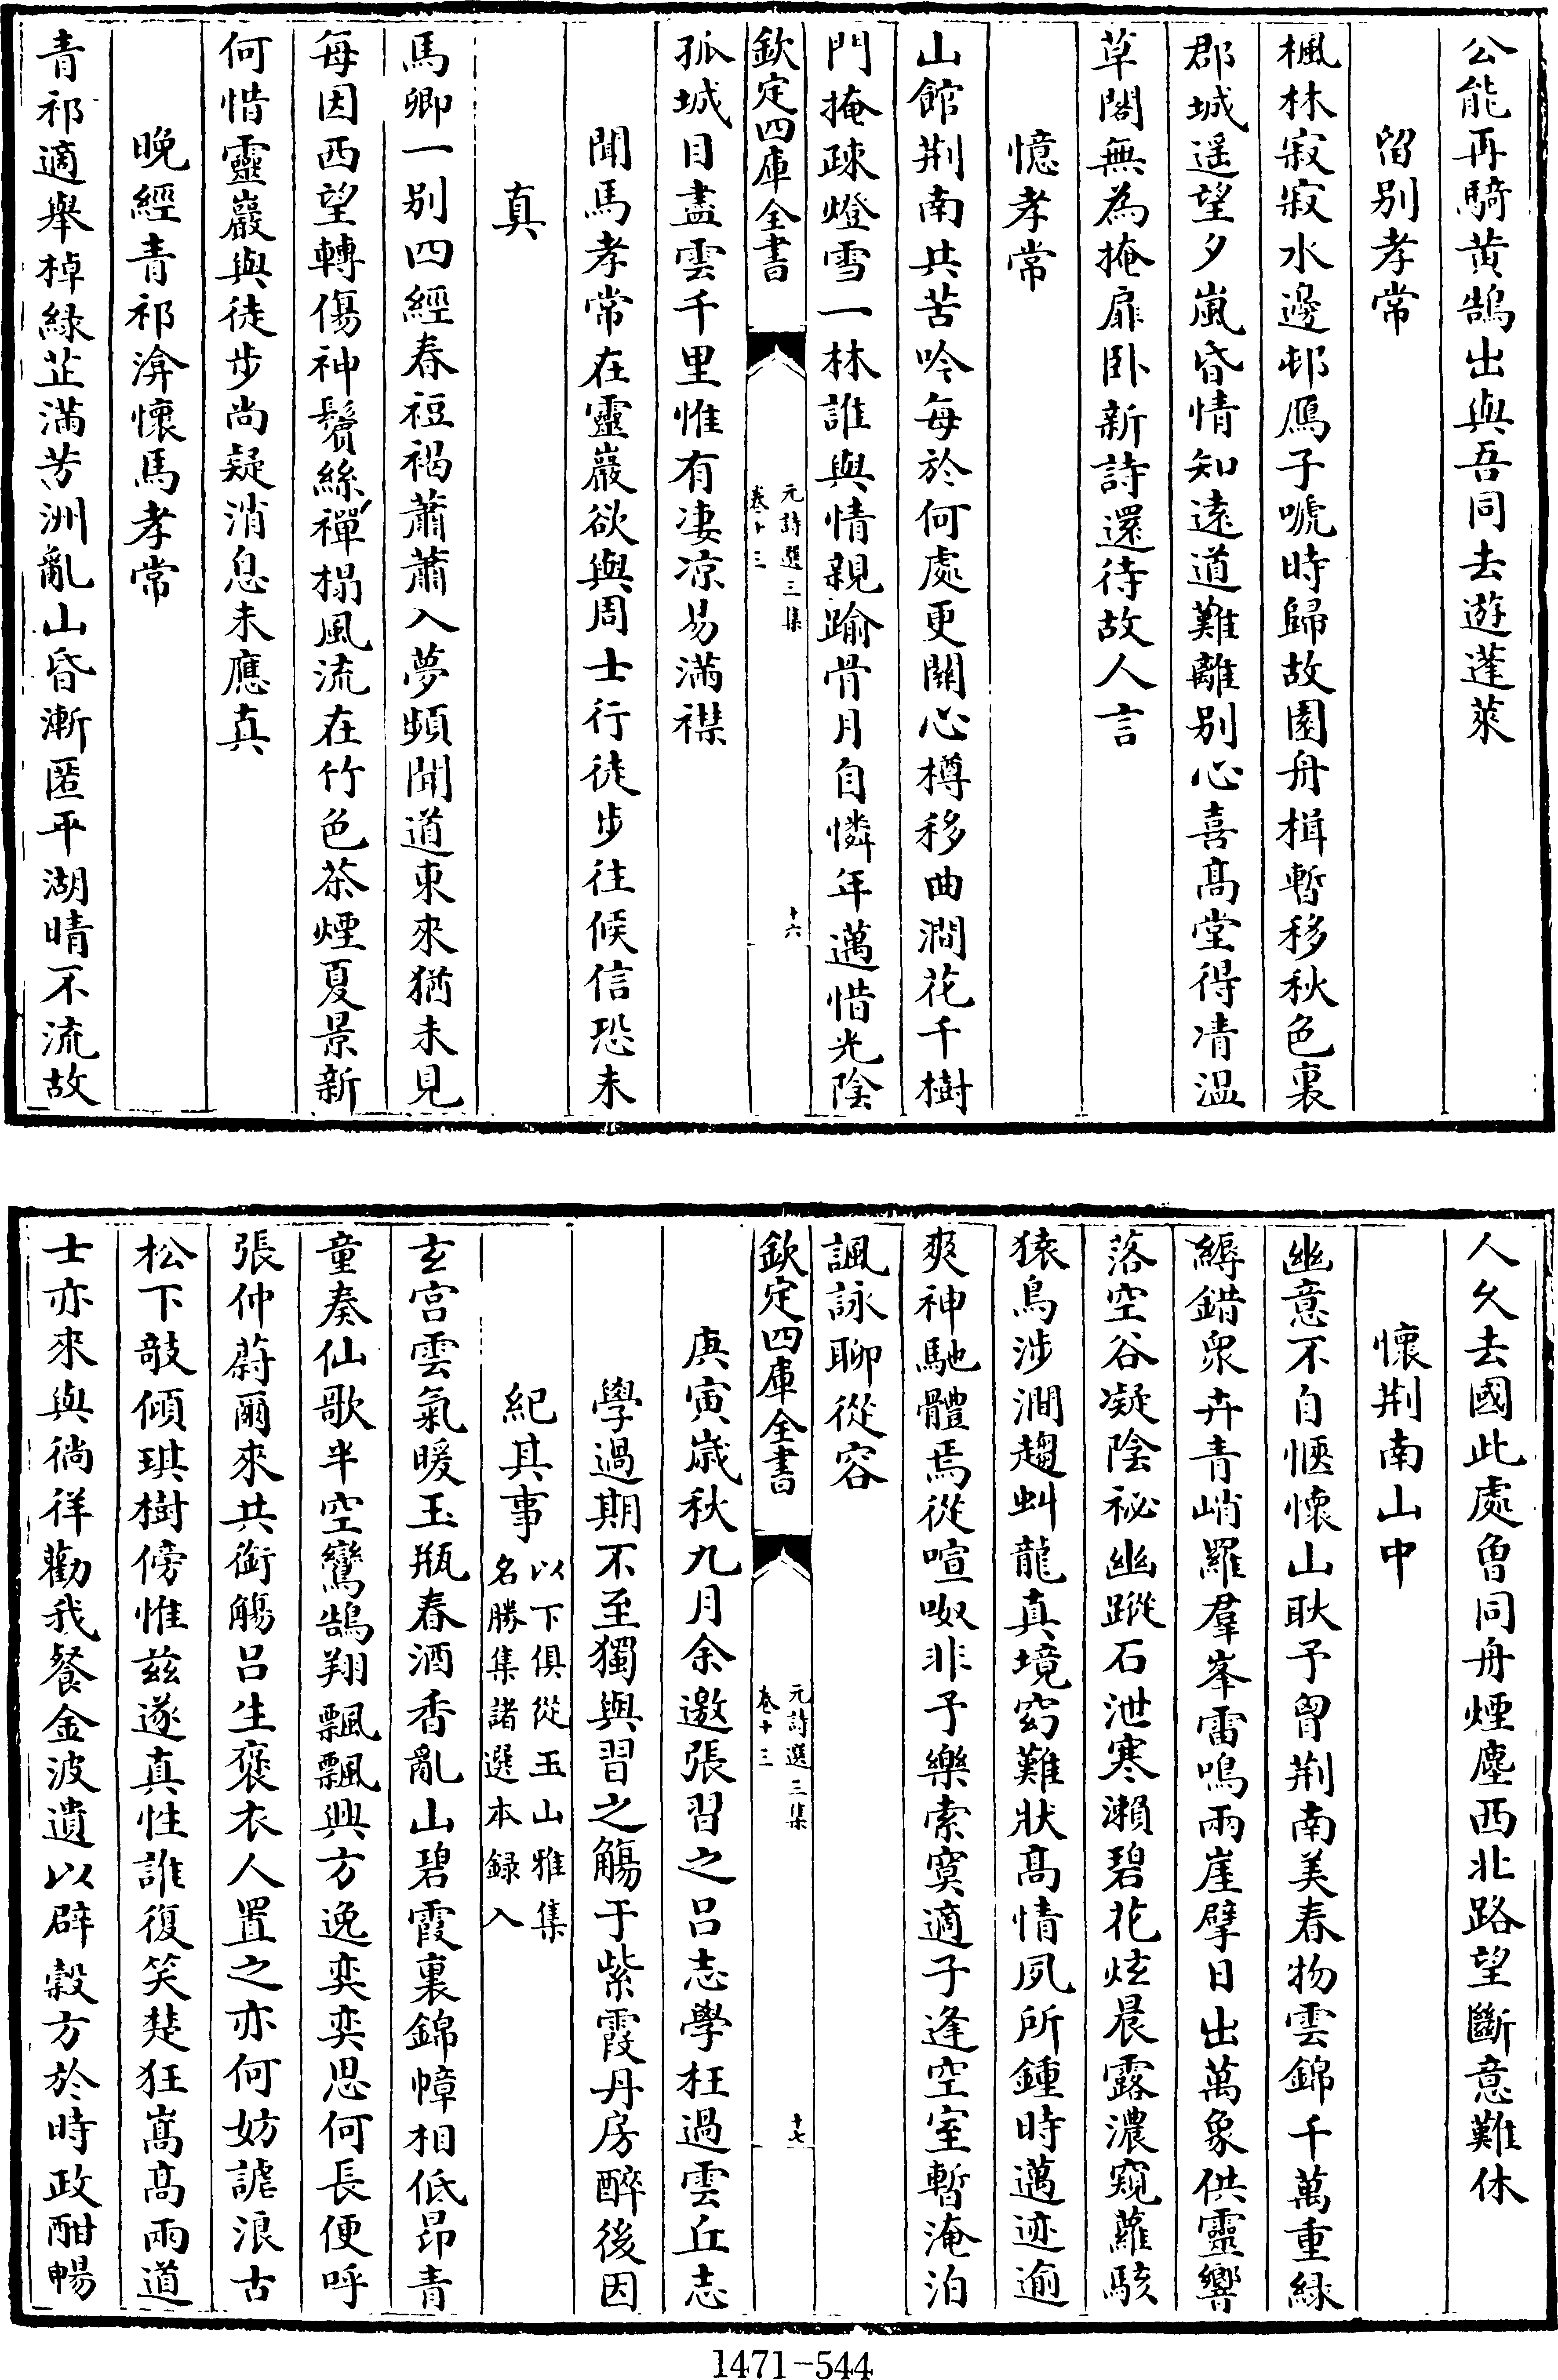 公能再騎黄鵠出與吾同去遊蓬萊
留别孝常
楓林寂寂水邊邨鴈子啼時歸故園舟楫暫移秋色裏
郡城遥望夕嵐昏情知逺道難離别心喜髙堂得凊温
草閣無為掩扉卧新詩還待故人言
憶孝常
山館荆南共苦吟每於何處更關心樽移曲澗花千樹
門掩疎燈雪一林誰與情親踰骨月自憐年邁惜光陰
欽定四庫全書
元詩選三集
卷十三
十六
孤城目盡雲千里惟有凄凉易滿襟
聞馬孝常在靈巖欲與周士行徒步往候信恐未
真
馬卿一别四經春裋褐蕭蕭入夢頻聞道東來猶未見
每因西望轉傷神鬢絲禪榻風流在竹色茶煙夏景新
何惜靈巖與徒步尚疑消息未應真
晚經青祁渰懷馬孝常
青祁適舉棹緑芷滿芳洲亂山昏漸匿平湖晴不流故
人久去國此處曽同舟煙塵西北路望斷意難休
懷荆南山中
幽意不自愜懷山耿予胷荆南美春物雲錦千萬重緑
縟錯衆卉青峭羅羣峯雷鳴兩崖擘日出萬象供靈響
落空谷凝陰祕幽蹤石泄寒瀨碧花炫晨露濃窺蘿駭
猿鳥涉澗趨虯龍真境窈難狀髙情夙所鍾時邁迹逾
爽神馳體焉從喧呶非子樂索寞適子逢空室暫淹泊
諷詠聊從容
欽定四庫全書
元詩選三集
卷十三
十七
庚寅嵗秋九月余邀張習之吕志學枉過雲丘志
學過期不至獨與習之觴于紫霞丹房醉後因
紀其事以下俱從玉山雅集
名勝集諸選本録入
玄宫雲氣暖玉瓶春酒香亂山碧霞裏錦幛相低昂青
童奏仙歌半空鸞鵠翔飄飄興方逸奕奕思何長便呼
張仲蔚爾來共銜觴吕生褒衣人置之亦何妨謔浪古
松下敧傾琪樹傍惟兹遂真性誰復笑楚狂嵩髙兩道
士亦來與徜徉勸我餐金波遺以辟穀方於時政酣暢
1471-544